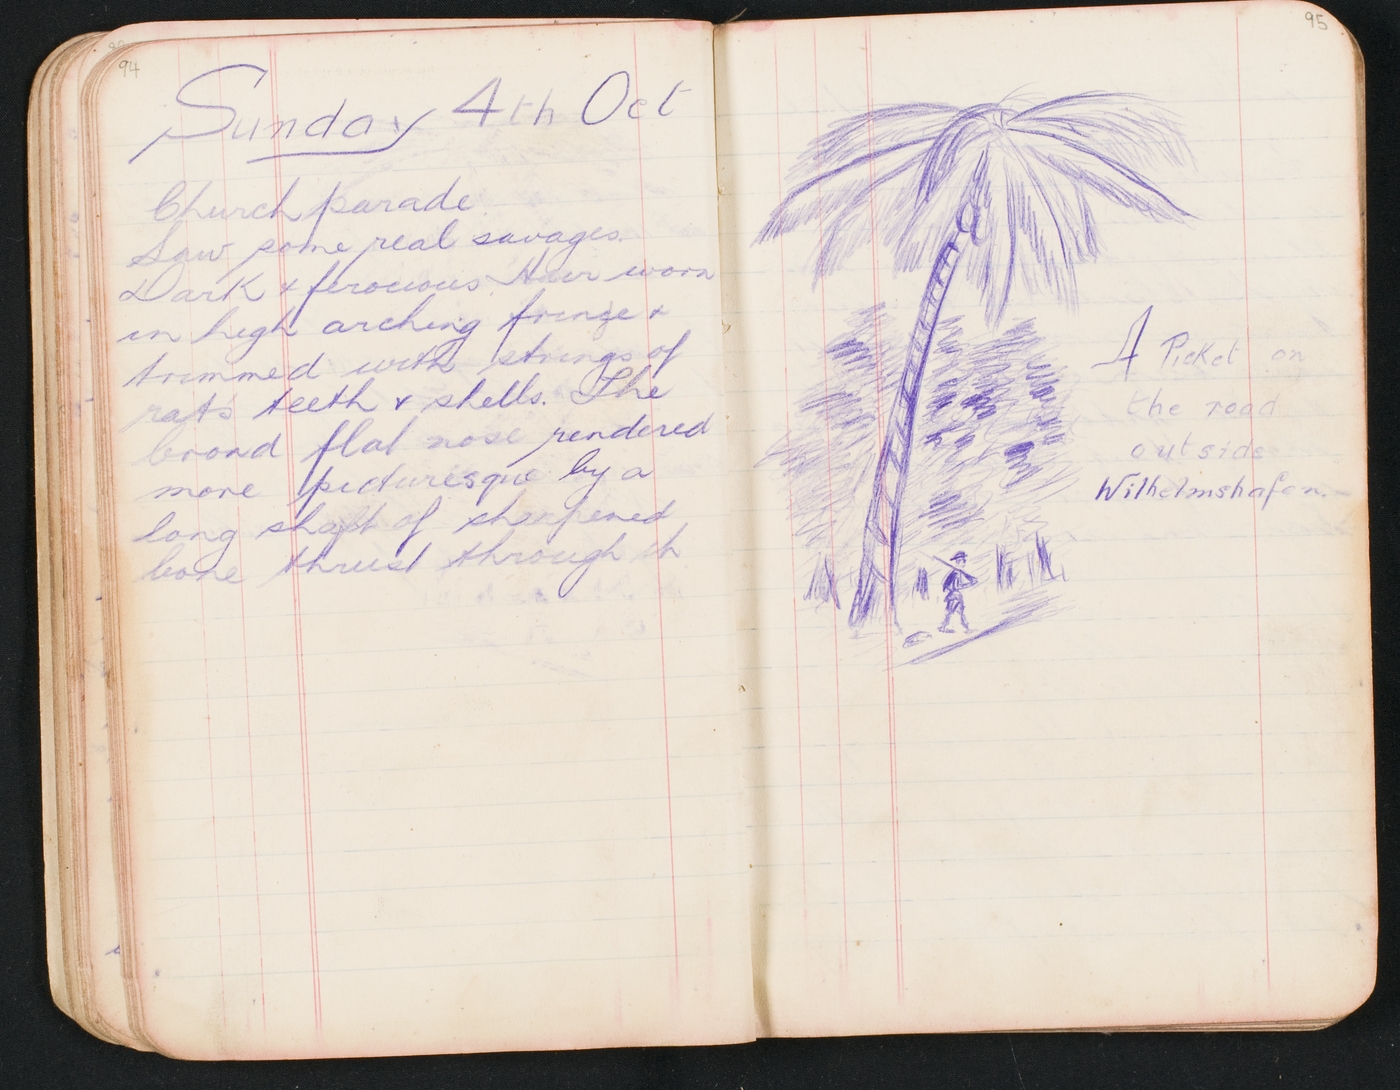 94
Sunday 4th Oct
Church parade.
Saw some real savages.
Dark & ferocious Hair worn
in high arching fringe &
trimmed with strings of
rat's teeth & shells. The
broad flat nose rendered
more picturesque by a
long shaft of sharpened
bone thrust through it.
95
A Picket on
the road
outside
Wilhelmshafen.